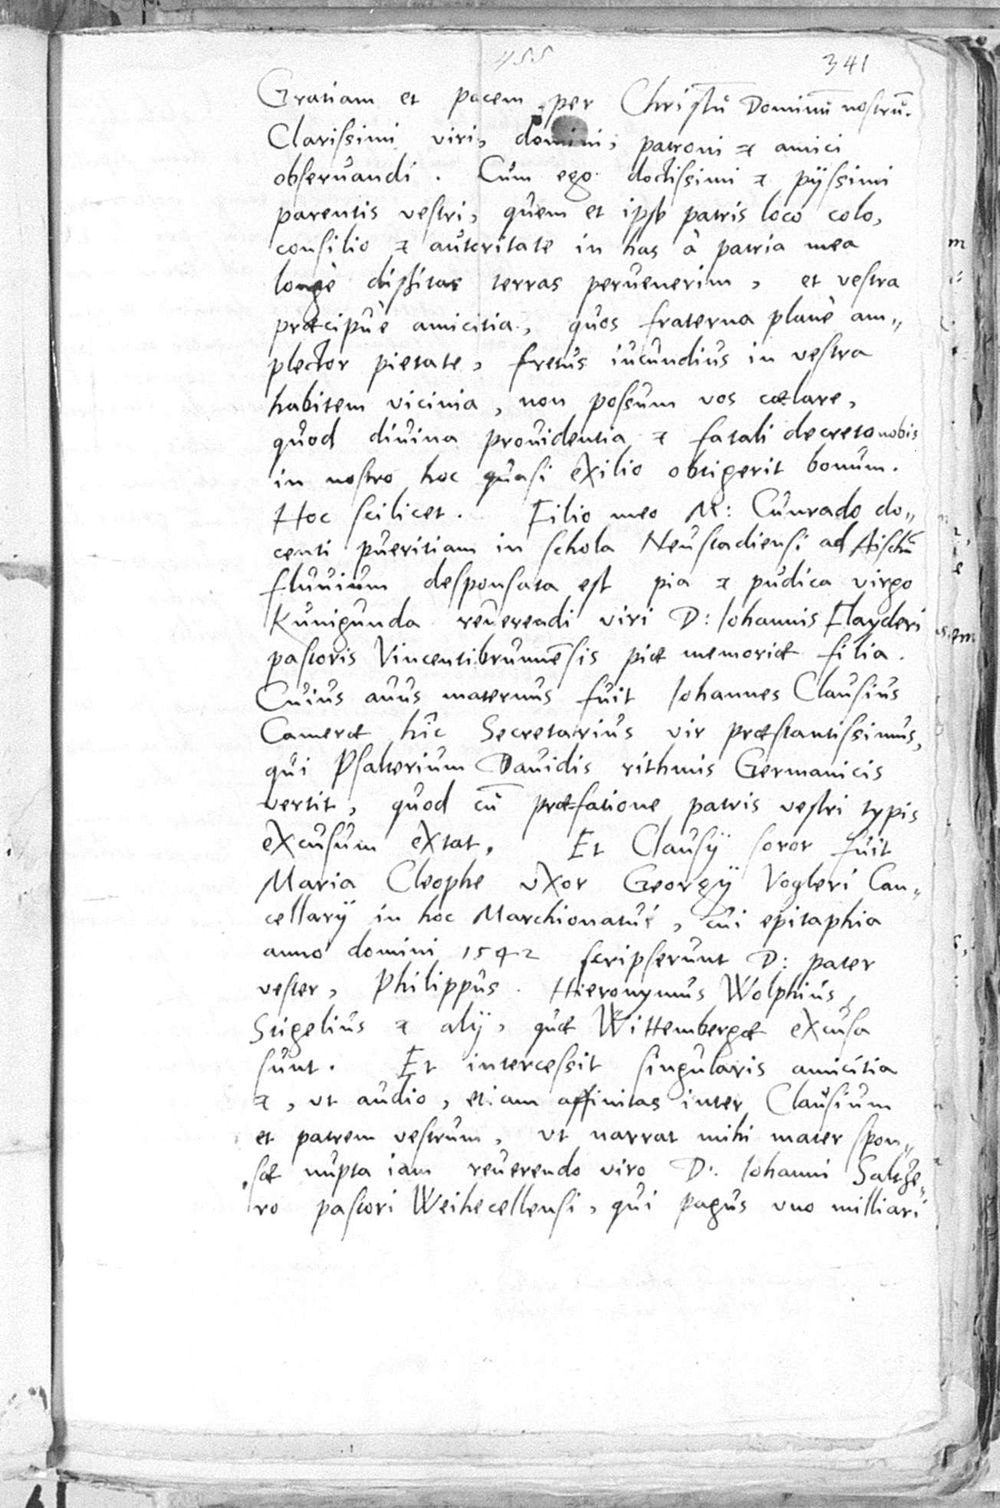 455 341
Gratiam et pacem per Christū Dominū nostrū.
Clarissimi viri, domini, patroni & amici
obseruandi. Cum ego doctissimi & pijssimi
parentis vestri, quem et ipse patris loco colo,
consilio & autoritate in has à patria mea
longè dissitas terras peruenerim, et vestra
præcipuè amicitia, quos fraterna planè am„
plector pietate, fretus iucundius in vestra
habitem vicinia, non possum vos cælare,
quod diuina prouidentia & fatali decreto nobis
in nostro hoc quasi exilio obtigerit bonum.
Hoc scilicet. Filio meo M: Cunrado do„
centi pueritiam in schola Neustadiensi ad Aischū
fluuium desponsata est pia & pudica virgo
Kunigunda reuerendi viri D: Iohannis Flayderi
pastoris Vincentibrunnēsis piæ memoriæ filia.
Cuius auus maternus fuit Iohannes Clausius
Cameræ hîc Secretarius vir præstantissimus,
qui Psalterium Dauidis rithmis Germanicis
vertit, quod cū præfatione patris vestri typis
excusum extat. Et Clausij soror fuit
Maria Cleophe vxor Georgij Vogleri Can„
cellarij in hoc Marchionatu, cui epitaphia
anno domini 1542 scripserunt D: pater
vester, Philippus. Hieronymus Wolphius,
Stigelius & alij, quæ Wittembergæ excusa
sunt. Et intercessit singularis amicitia
&, vt audio, etiam affinitas inter Clausium
et patrem vestrum, vt narrat mihi mater spon„
sæ nupta iam reuerendo viro D: Iohanni Saltze„
ro pastori Weihecellensi, qui pagus vno milliari